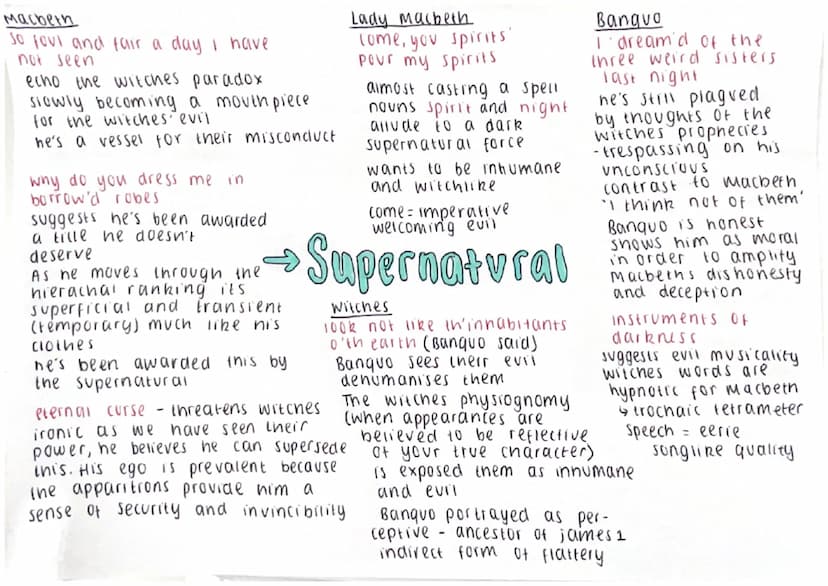 Macbeth
So foul and fair a day I have
not seen
echo the witches paradox
slowly becoming a mouthpiece
for the witches' evil
he's a vessel for their misconduct
why do you dress me in
borrow'd robes
suggests he's been awarded
a title he doesn't
deserve
As he moves through the
hierachal ranking its
superficial and transient
(temporary) much like his
clothes
he's been awarded this by
the supernatural
eternal curse - threatens witches
ironic as we have seen their
power, he believes he can supersede
this. His ego is prevalent because
the apparitions provide him a
sense of security and invincibility
Lady Macbeth
come, you spirits'
pour my spirits
almost casting a spell
nouns spirit and night
allude to a dark
supernatural force
wants to be inhumane
and witchlike
come = imperative
welcoming evil
→ Supernatural
Witches
look not like th'inhabitants
o'th earth (Banquo said)
Banquo sees their evil
dehumanises them
The witches physiognomy
(when appearances are
believed to be reflective
of your true character)
is exposed them as inhumane
and evil
Banquo portrayed as per-
ceptive - ancestor of james 1
indirect form of flattery
Banquo
I dream'd of the
three weird sisters
last night
he's still plagued
by thoughts of the
witches prophecies
-trespassing on his
unconscious
contrast to Macbeth
'I think not of them'
Banquo is honest
shows him as moral
in order to amplify
Macbeths dishonesty
and deception
instruments of
darkness
suggests evil musicality
witches words are
hypnotic for Macbeth
↳ trochaic tetrameter
speech = eerie
songlike quality